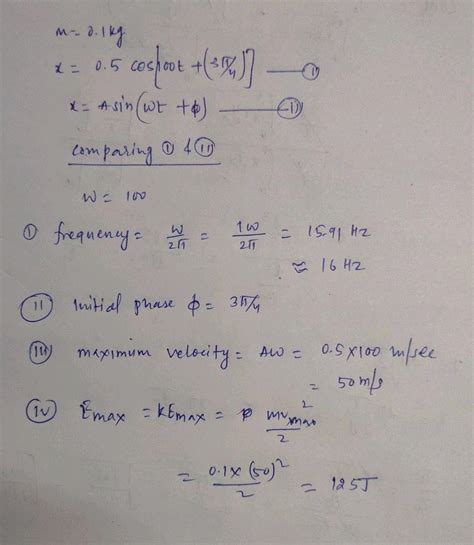 m = 0.1kg
x = 0.5 cos[100t + (3π/4)] — (I)
x = A sin(ωt + ϕ) — (II)
comparing (I) & (II)
ω = 100
(I) frequency = ω/2π = 100/2π = 15.91 Hz
≈ 16 Hz
(II) initial phase ϕ = 3π/4
(III) maximum velocity = Aω = 0.5 × 100 m/sec
= 50 m/s
(IV) Emax = KEmax = mv²max/2
= 0.1 × (50)²/2 = 125J